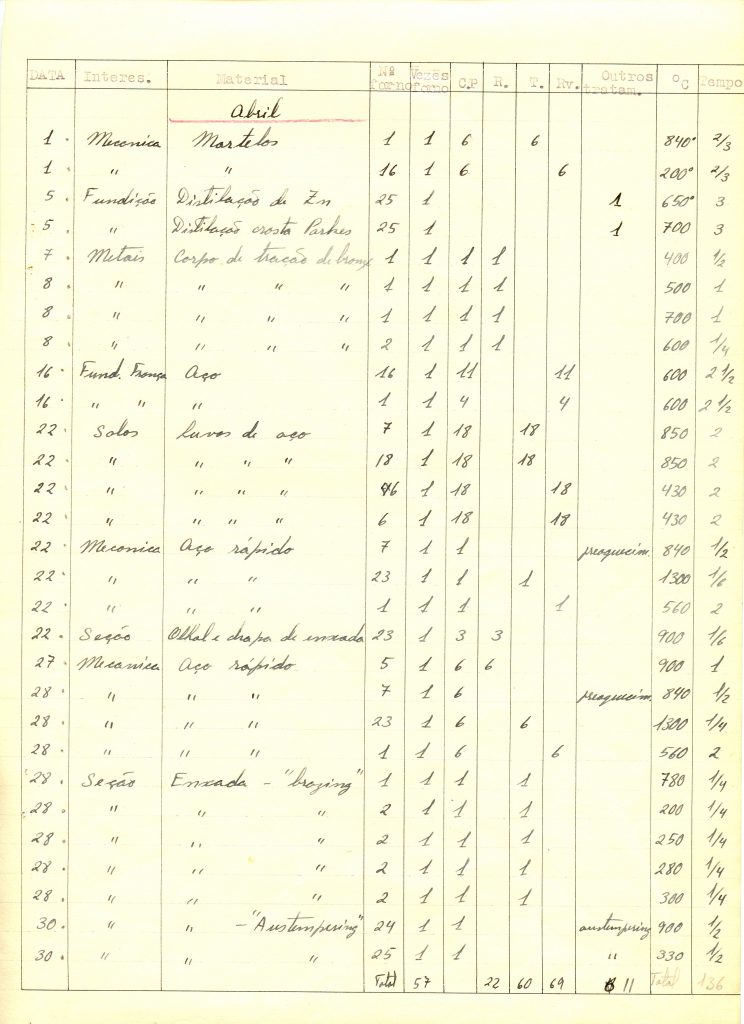 DATA Interes. Material Nº forno Vezes forno C.P R. T. Rv. Outros tratam. ºC Tempo
Abril
1 Mecanica Martelos 1 1 6 6 840° 2/3
1 " " 16 1 6 6 200° 2/3
5 Fundição Distilação de Zn 25 1 1 650° 3
5 " Distilação crosta Parkes 25 1 1 700 3
7 Metais Corpo de tração de bronze 1 1 1 1 400 1/2
8 " " " " 1 1 1 1 500 1
8 " " " " 1 1 1 1 700 1
8 " " " " 2 1 1 1 600 1/4
16 Fund. França Aço 16 1 11 11 600 2 1/2
16 " " " 1 1 4 4 600 2 1/2
22 Solos Luvas de aço 7 1 18 18 850 2
22 " " " " 18 1 18 18 850 2
22 " " " " 16 1 18 18 430 2
22 " " " " 6 1 18 18 430 2
22 Mecanica Aço rápido 7 1 1 preaquecim. 840 1/2
22 " " " 23 1 1 1 1300 1/6
22 " " " 1 1 1 1 560 2
22 Seção Olhal e chapa de enxada 23 1 3 3 900 1/6
27 Mecanica Aço rápido 5 1 6 6 900 1
28 " " " 7 1 6 preaquecim. 840 1/2
28 " " " 23 1 6 6 1300 1/4
28 " " " 1 1 6 6 560 2
28 Seção Enxada - "brazing" 1 1 1 1 780 1/4
28 " " " 2 1 1 1 200 1/4
28 " " " 2 1 1 1 250 1/4
28 " " " 2 1 1 1 280 1/4
28 " " " 2 1 1 1 300 1/4
30 " " - "Austempering" 24 1 1 austempering 900 1/2
30 " " " 25 1 1 " 330 1/2
Total 57 22 60 69 11 Total 136